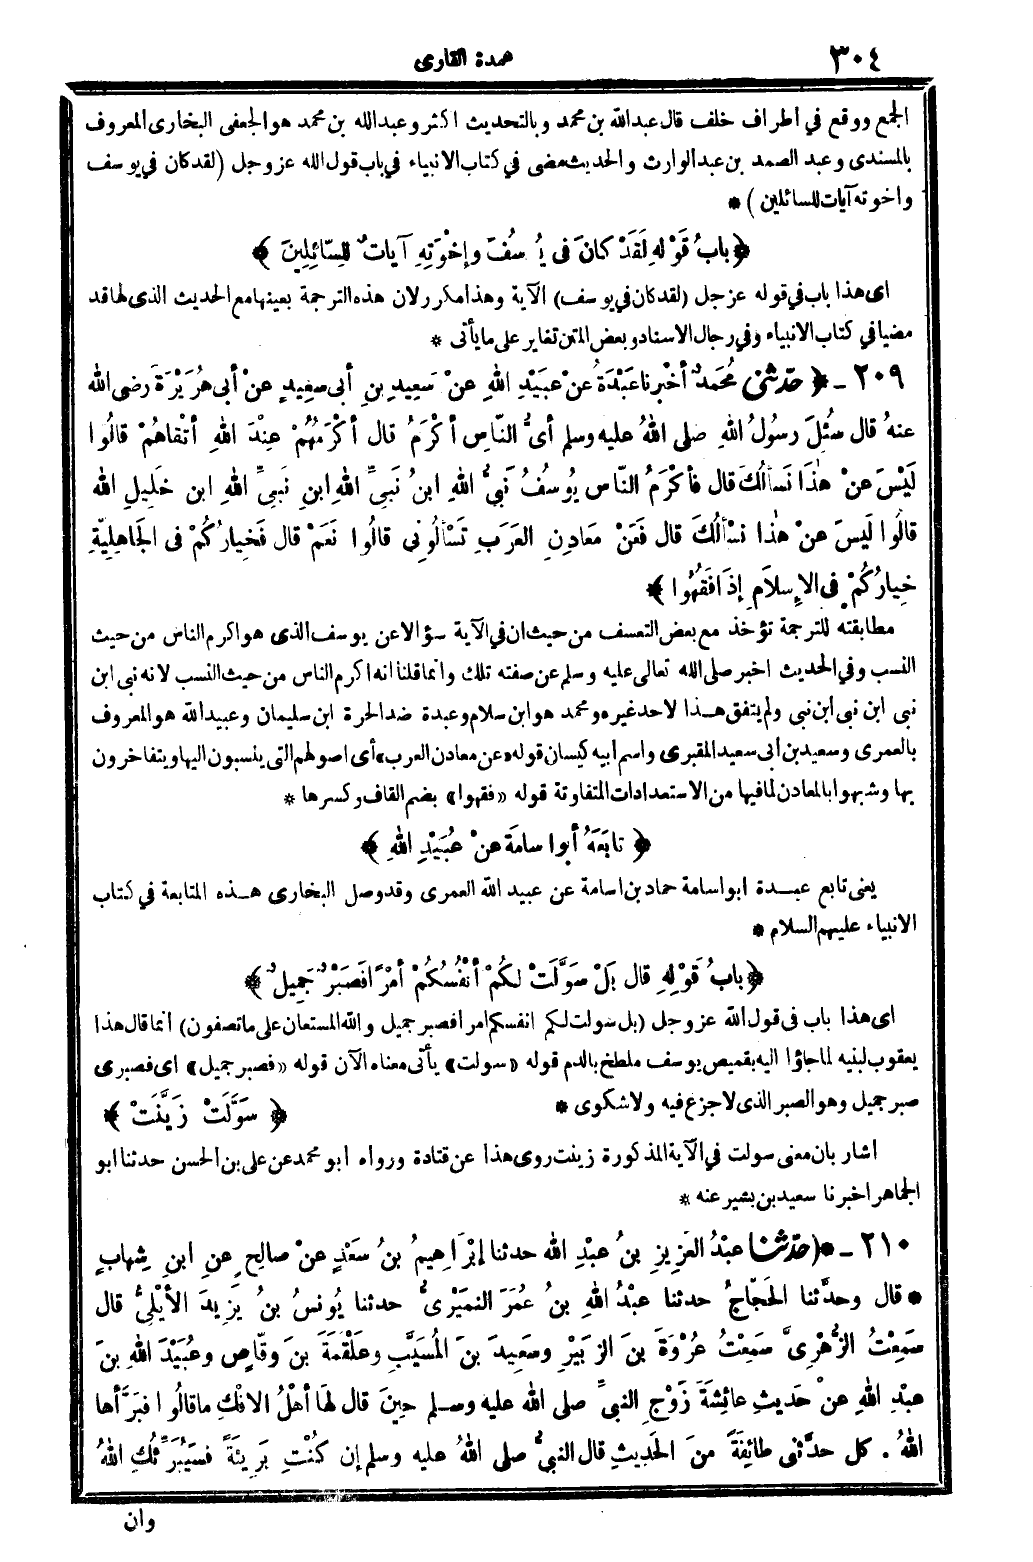 ٣٠٤
عمدة القارى
الجمع ووقع في أطراف خلف قال عبدالله بن محمد وبالتحديث اكثر وعبدالله بن محمد هو الجعفى البخارى المعروف
بالمسندى وعبد الصمد بن عبد الوارث والحديث مضى في كتاب الانبياء في باب قول الله عز وجل (لقد كان في يوسف
واخوته آيات للسائلين) *
﴿ بابُ قَوْلِهِ لَقَدْ كانَ فى يُوسُفَ وإخْوَتِهِ آياتٌ لِلسّائِلِينَ ﴾
اى هذا باب في قوله عز جل (لقد كان في يوسف) الآية وهذا مكرر لان هذه الترجمة بعينها مع الحديث الذى لها قد
مضيا في كتاب الانبياء وفي رجال الاسناد وبعض المتن تغاير على ما يأتى *
٢٠٩ ـ ﴿ حدّثنى مُحَمدٌ أخْبرنا عَبْدَةُ عنْ عبَيْدِ اللهِ عنْ سَعِيدِ بنِ أبى سعِيدٍ عنْ أبى هُرَيْرَةَ رضى الله
عنهُ قال سُئِلَ رسولُ اللهِ صلى اللهُ عليه وسلم أىُّ النَّاسِ أكْرَمُ قال أكْرَمُهُمْ عِنْدَ اللهِ أتْقاهُمْ قالُوا
لَيْسَ عنْ هٰذَا نَسْألُكَ قال فأكْرَمُ النّاس يُوسُفُ نَبىُّ اللهِ ابنُ نَبىِّ اللهِ ابنِ نَبىِّ اللهِ ابن خَلِيلِ الله
قالُوا لَيسَ عنْ هٰذا نسْألُكَ قال فَعَنْ مَعادِنِ العَرَبِ تَسْألُونِى قالُوا نَعَمْ قال فَخِيارُكُمْ فى الجَاهِلِيّةِ
خِيارُكُمْ فى الإِسلاَمِ إذَا فَقُهُوا ﴾
مطابقته للترجمة تؤخذ مع بعض التعسف من حيث ان في الآية سؤالا عن يوسف الذى هو اكرم الناس من حيث
النسب وفي الحديث اخبر صلى الله تعالى عليه وسلم عن صفته تلك وانما قلنا انه اكرم الناس من حيث النسب لانه نبى ابن
نبى ابن نبى أبن نبى ولم يتفق هذا لاحد غيره ومحمد هو ابن سلام وعبدة ضد الحرة ابن سليمان وعبيد الله هو المعروف
بالعمرى وسعيد بن أبى سعيد المقبرى واسم أبيه كيسان قوله «عن معادن العرب» أى اصولهم التى ينسبون اليها ويتفاخرون
بها وشبهوا بالمعادن لما فيها من الاستعدادات المتفاوتة قوله «فقهوا» بضم القاف وكسرها *
﴿ تابَعَهُ أبو اسامَةَ عنْ عُبَيْدِ اللهِ ﴾
يعنى تابع عبدة ابو اسامة حماد بن اسامة عن عبيد الله العمرى وقد وصل البخارى هذه المتابعة في كتاب
الانبياء عليهم السلام *
﴿ بابُ قوْلِهِ قال بَلْ سَوَّلَتْ لَكُمْ أنْفُسُكُمْ أمْرًا فَصَبْرٌ جَمِيلٌ ﴾
اى هذا باب فى قول الله عز وجل (بل سولت لكم انفسكم امرا فصبر جميل والله المستعان على ما تصفون) انما قال هذا
يعقوب لبنيه لما جاؤا اليه بقميص يوسف ملطخ بالدم قوله «سولت» يأتى معناه الآن قوله «فصبر جميل» اى فصبرى
صبر جميل وهو الصبر الذى لا جزع فيه ولا شكوى * ﴿ سَوَّلَتْ زَيَّنَتْ ﴾
اشار بان معنى سولت في الآية المذكورة زينت روى هذا عن قتادة ورواه ابو محمد عن على بن الحسن حدثنا ابو
الجماهر اخبرنا سعيد بن بشير عنه *
٢١٠ ـ ﴿ حدّثنا عبْدُ العَزِيزِ بنُ عبْدِ الله حدثنا إبْرَاهِيمُ بنُ سَعْدٍ عنْ صالِحٍ عنِ ابنِ شِهابٍ
* قال وحدَّثنا الحَجّاجُ حدثنا عبْدُ اللهِ بنُ عُمَرَ النمَيْرِىُّ حدثنا يُونُسُ بنُ يَزِيدَ الأيْلِىُّ قال
سَمِعْتُ الزُّهْرِىَّ سَمِعْتُ عُرْوَةَ بنَ الزبَيْرِ وسَعِيدَ بنَ المُسَيَّبِ وعَلْقَمَةَ بنَ وقّاصٍ وعُبَيْدَ اللهِ بنَ
عبْدِ اللهِ عنْ حَدِيثِ عائِشَةَ زَوْجِ النبىِّ صلى الله عليه وسلم حِينَ قال لهَا أهْلُ الافْكِ ما قالُوا فبَرَّأها
اللهُ . كل حدَّثنى طائِفَةً منَ الحَدِيثِ قال النبىُّ صلى اللهُ عليه وسلم إن كُنْتِ بَرِيئَةً فسَيُبَرِّئُكِ اللهُ
وان